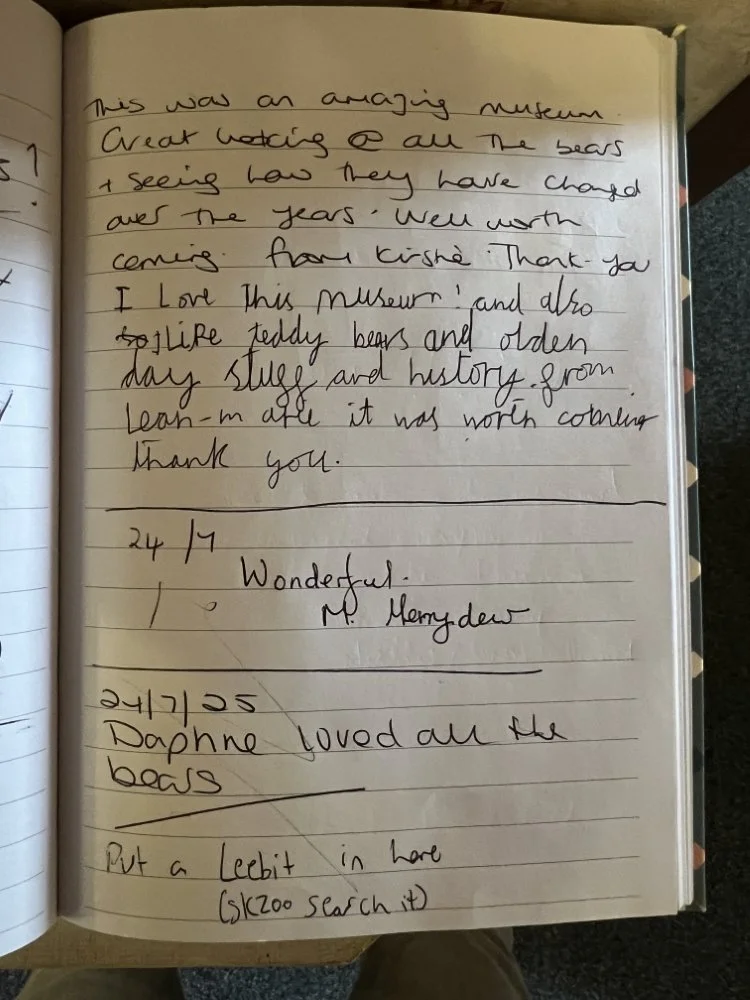 This was an amazing museum.
Great looking @ all the bears
+ seeing how they have changed
over the years. Well worth
coming. from Kirstie. Thank-you
I Love This museum! and also
I like teddy bears and olden
day stugg and history. from
Leah-m it was worth coming
thank you.
24/7
Wonderful.
M. Merrydew
24/7/25
Daphne loved all the
bears
Put a Leebit in here
(SKZOO search it)